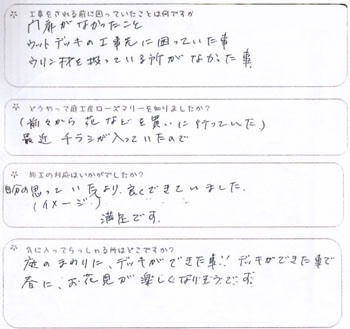 ☆ 工事をされる前に困っていたことは何ですか
門扉がなかったこと
ウットデッキの工事先に困っていた事
ウリン材を扱っている所がなかった事
☆ どうやって庭工房ローズマリーを知りましたか?
(前々から 花などを買いに行っていた)
最近 チラシが入っていたので
☆ 施工の対応はいかがでしたか?
自分の思っていたより、良くできていました。
(イメージ)
満足です。
☆ 気に入ってらっしゃる所はどこですか?
庭のまわりに、デッキができた事!! デッキができた事で
春に、お花見が楽しくなりそうです。